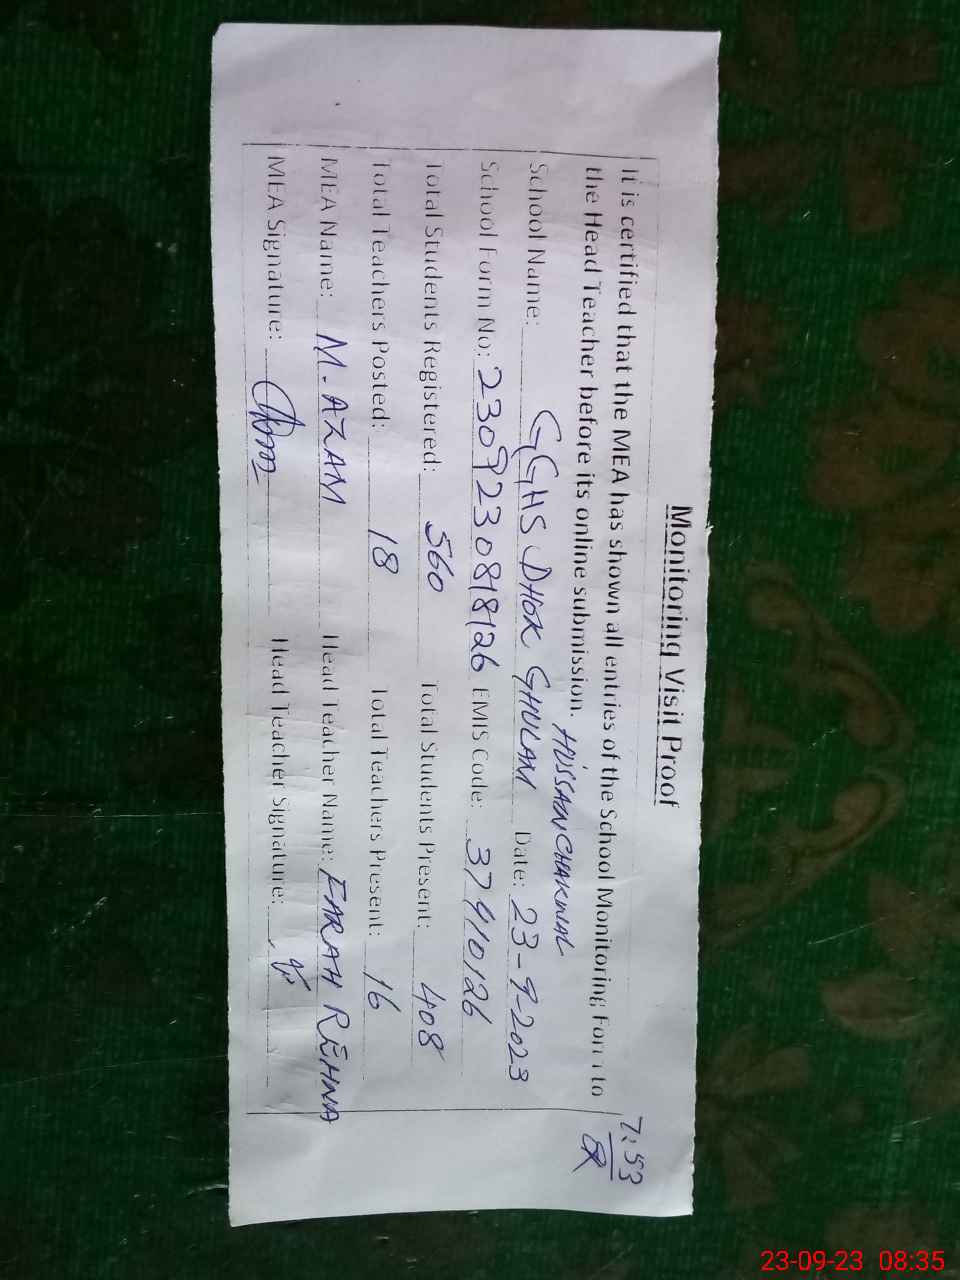 Monitoring Visit Proof
It is certified that the MEA has shown all entries of the School Monitoring Form to
the Head Teacher before its online submission.
7:53
HUSSAIN CHAKWAL
School Name: GGHS DHOK GHULAM Date: 23-9-2023
School Form No: 2309230818126 EMIS Code: 37410126
Total Students Registered: 560 Total Students Present: 408
Total Teachers Posted: 18 Total Teachers Present: 16
MEA Name: M. AZAM Head Teacher Name: FARAH REHNA
MEA Signature: Head Teacher Signature:
23-09-23 08:35